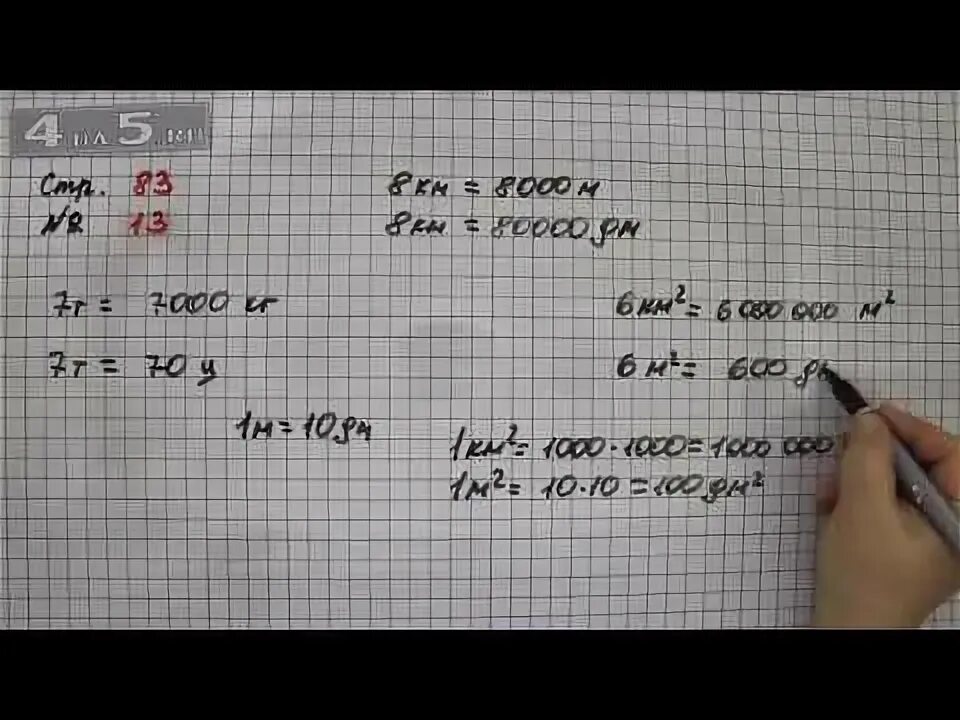 4 на 5.
Стр. 83
№ 13
8 км = 8000 м
8 км = 80000 дм
7т = 7000 кг
7т = 70 ц
6 км² = 6 000 000 м²
6 м² = 600 дм
1м = 10 дм
1 км² = 1000 · 1000 = 1000 000
1 м² = 10 · 10 = 100 дм²